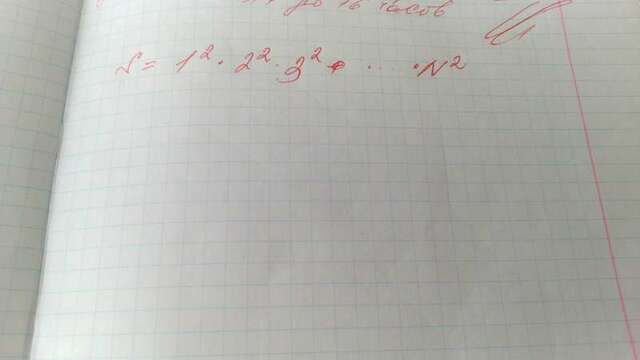 до 16 часов
S = 1² · 2² · 3² · .... · N²